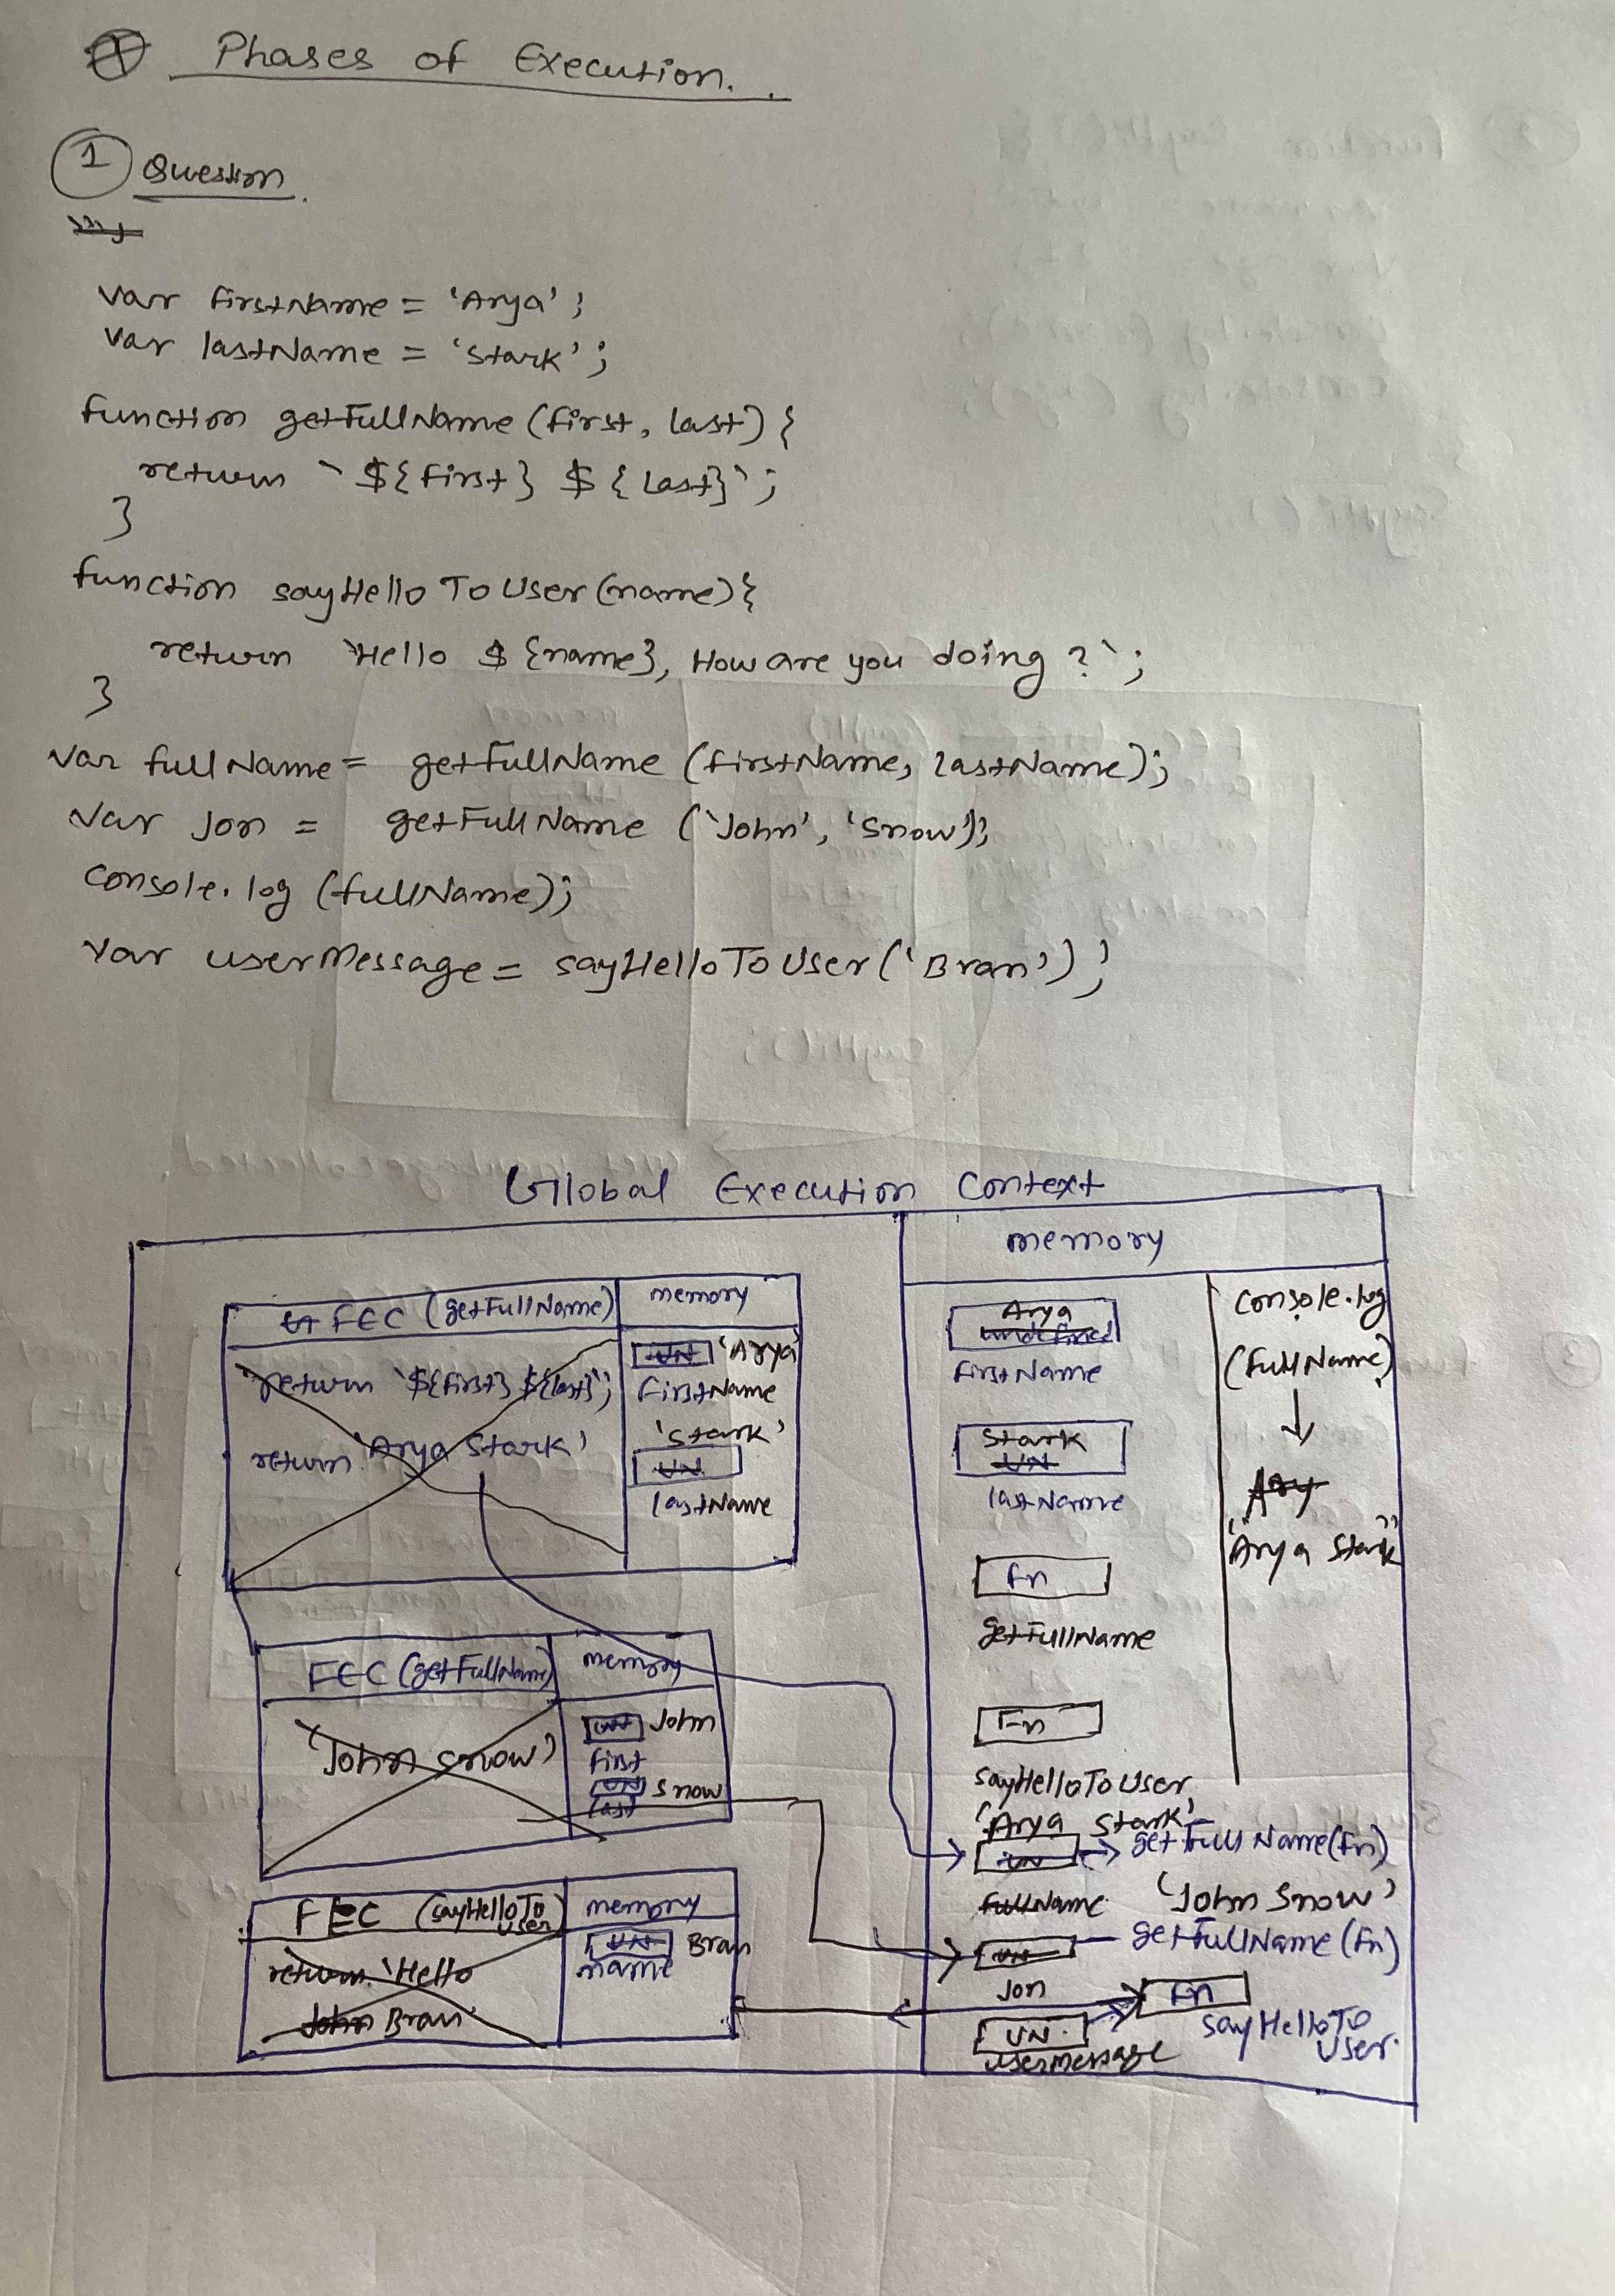 Phases of Execution.
1 Question.
var firstName = 'Arya';
var lastName = 'Stark';
function getFullName (first, last) {
return `${first} ${last}`;
}
function sayHelloToUser (name) {
return `Hello ${name}, How are you doing ?`;
}
var fullName = getFullName (firstName, lastName);
var jon = getFullName ('John', 'Snow');
console.log (fullName);
var userMessage = sayHelloToUser ('Bran');
Global Execution Context
memory
FEC (getFullName)
memory
return `${first} ${last}`;
return 'Arya Stark'
UN 'Arya'
firstName
'Stark'
UN
lastName
FEC (getFullName)
memory
'John snow'
UN John
first
UN Snow
last
FEC (sayHelloTo
User)
memory
return 'Hello
John Bran'
UN Bran
name
Arya
undefined
firstName
Stark
UN
lastName
fn
getFullName
Fn
sayHelloToUser
'Arya Stark'
UN
getFullName(fn)
fullName
'John Snow'
UN
getFullName (fn)
Jon
fn
sayHelloTo
User.
UN.
usermessage
console.log
(fullName)
Ary
"Arya Stark"